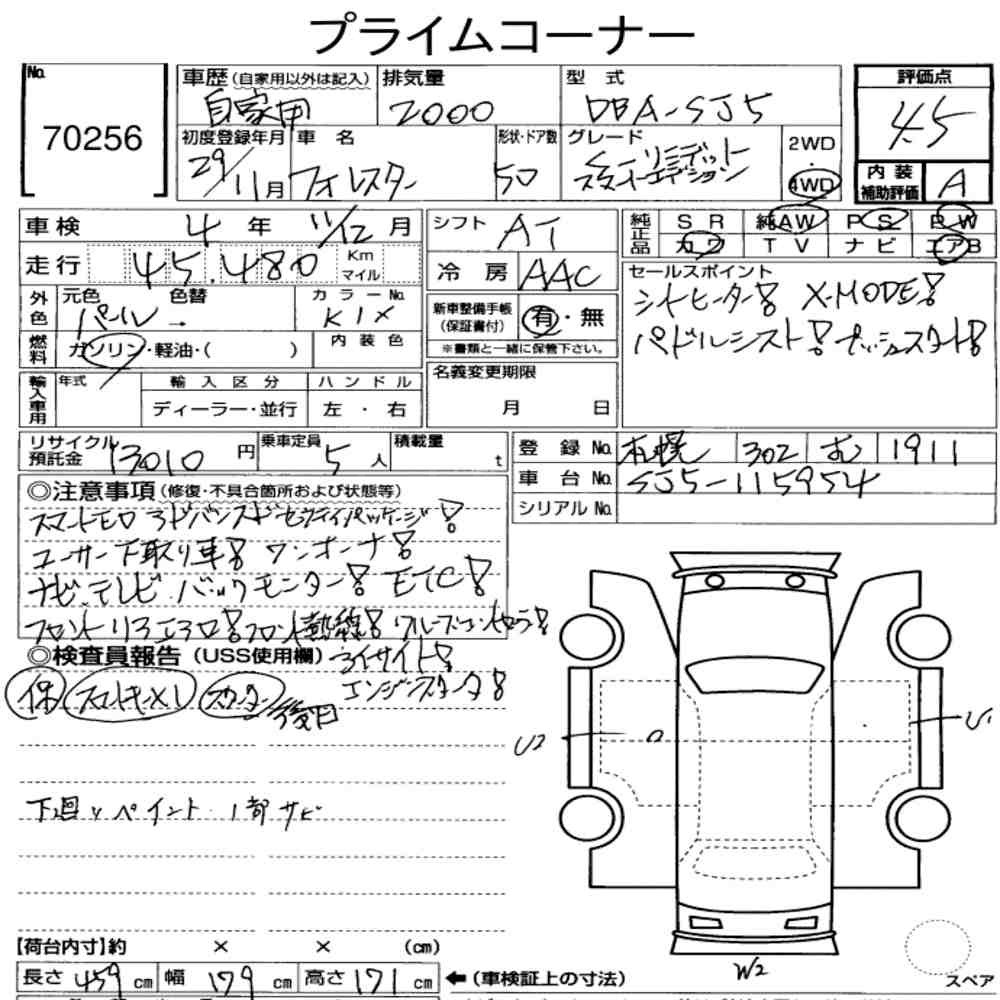 プライムコーナー
No.
70256
車歴 (自家用以外は記入)
自家用
排気量
2000
型 式
DBA-SJ5
評価点
4.5
初度登録年月
29/11月
車 名
フォレスター
形状・ドア数
5D
グレード
2WD
・
4WD
内装
補助評価
A
車検
4 年 11/12 月
走行
45,480
Km
マイル
外色
元色
色替
パール →
カラーNo.
K1X
燃料
ガソリン・軽油・( )
内 装 色
輸入車用
年式
輸 入 区 分
ハ ン ド ル
ディーラー・並行
左 ・ 右
シフト
AT
冷 房
AAC
新車整備手帳
(保証書付)
有・無
※書類と一緒に保管下さい。
名義変更期限
月 日
純正品
S R
純AW
P S
P W
カワ
T V
ナビ
エアB
セールスポイント
シートヒーター! X-MODE!
パドルシフト! プッシュスタート!
リサイクル
預託金
13010 円
乗車定員
5 人
積載量
t
登 録 No.
札幌 302 む 1911
車 台 No.
SJ5-115954
シリアル No.
◎注意事項 (修復・不具合箇所および状態等)
ユーザー下取り車! ワンオーナー!
ナビ、テレビ バックモニター! ETC!
◎検査員報告 (USS使用欄)
アイサイト!
エンジンスターター!
保 スマートキー×1 スターター 後日
下廻りペイント 1部サビ
U2
U1
W2
【荷台内寸】約 × × (cm)
長さ 459 cm 幅 179 cm 高さ 171 cm
←(車検証上の寸法)
スペア